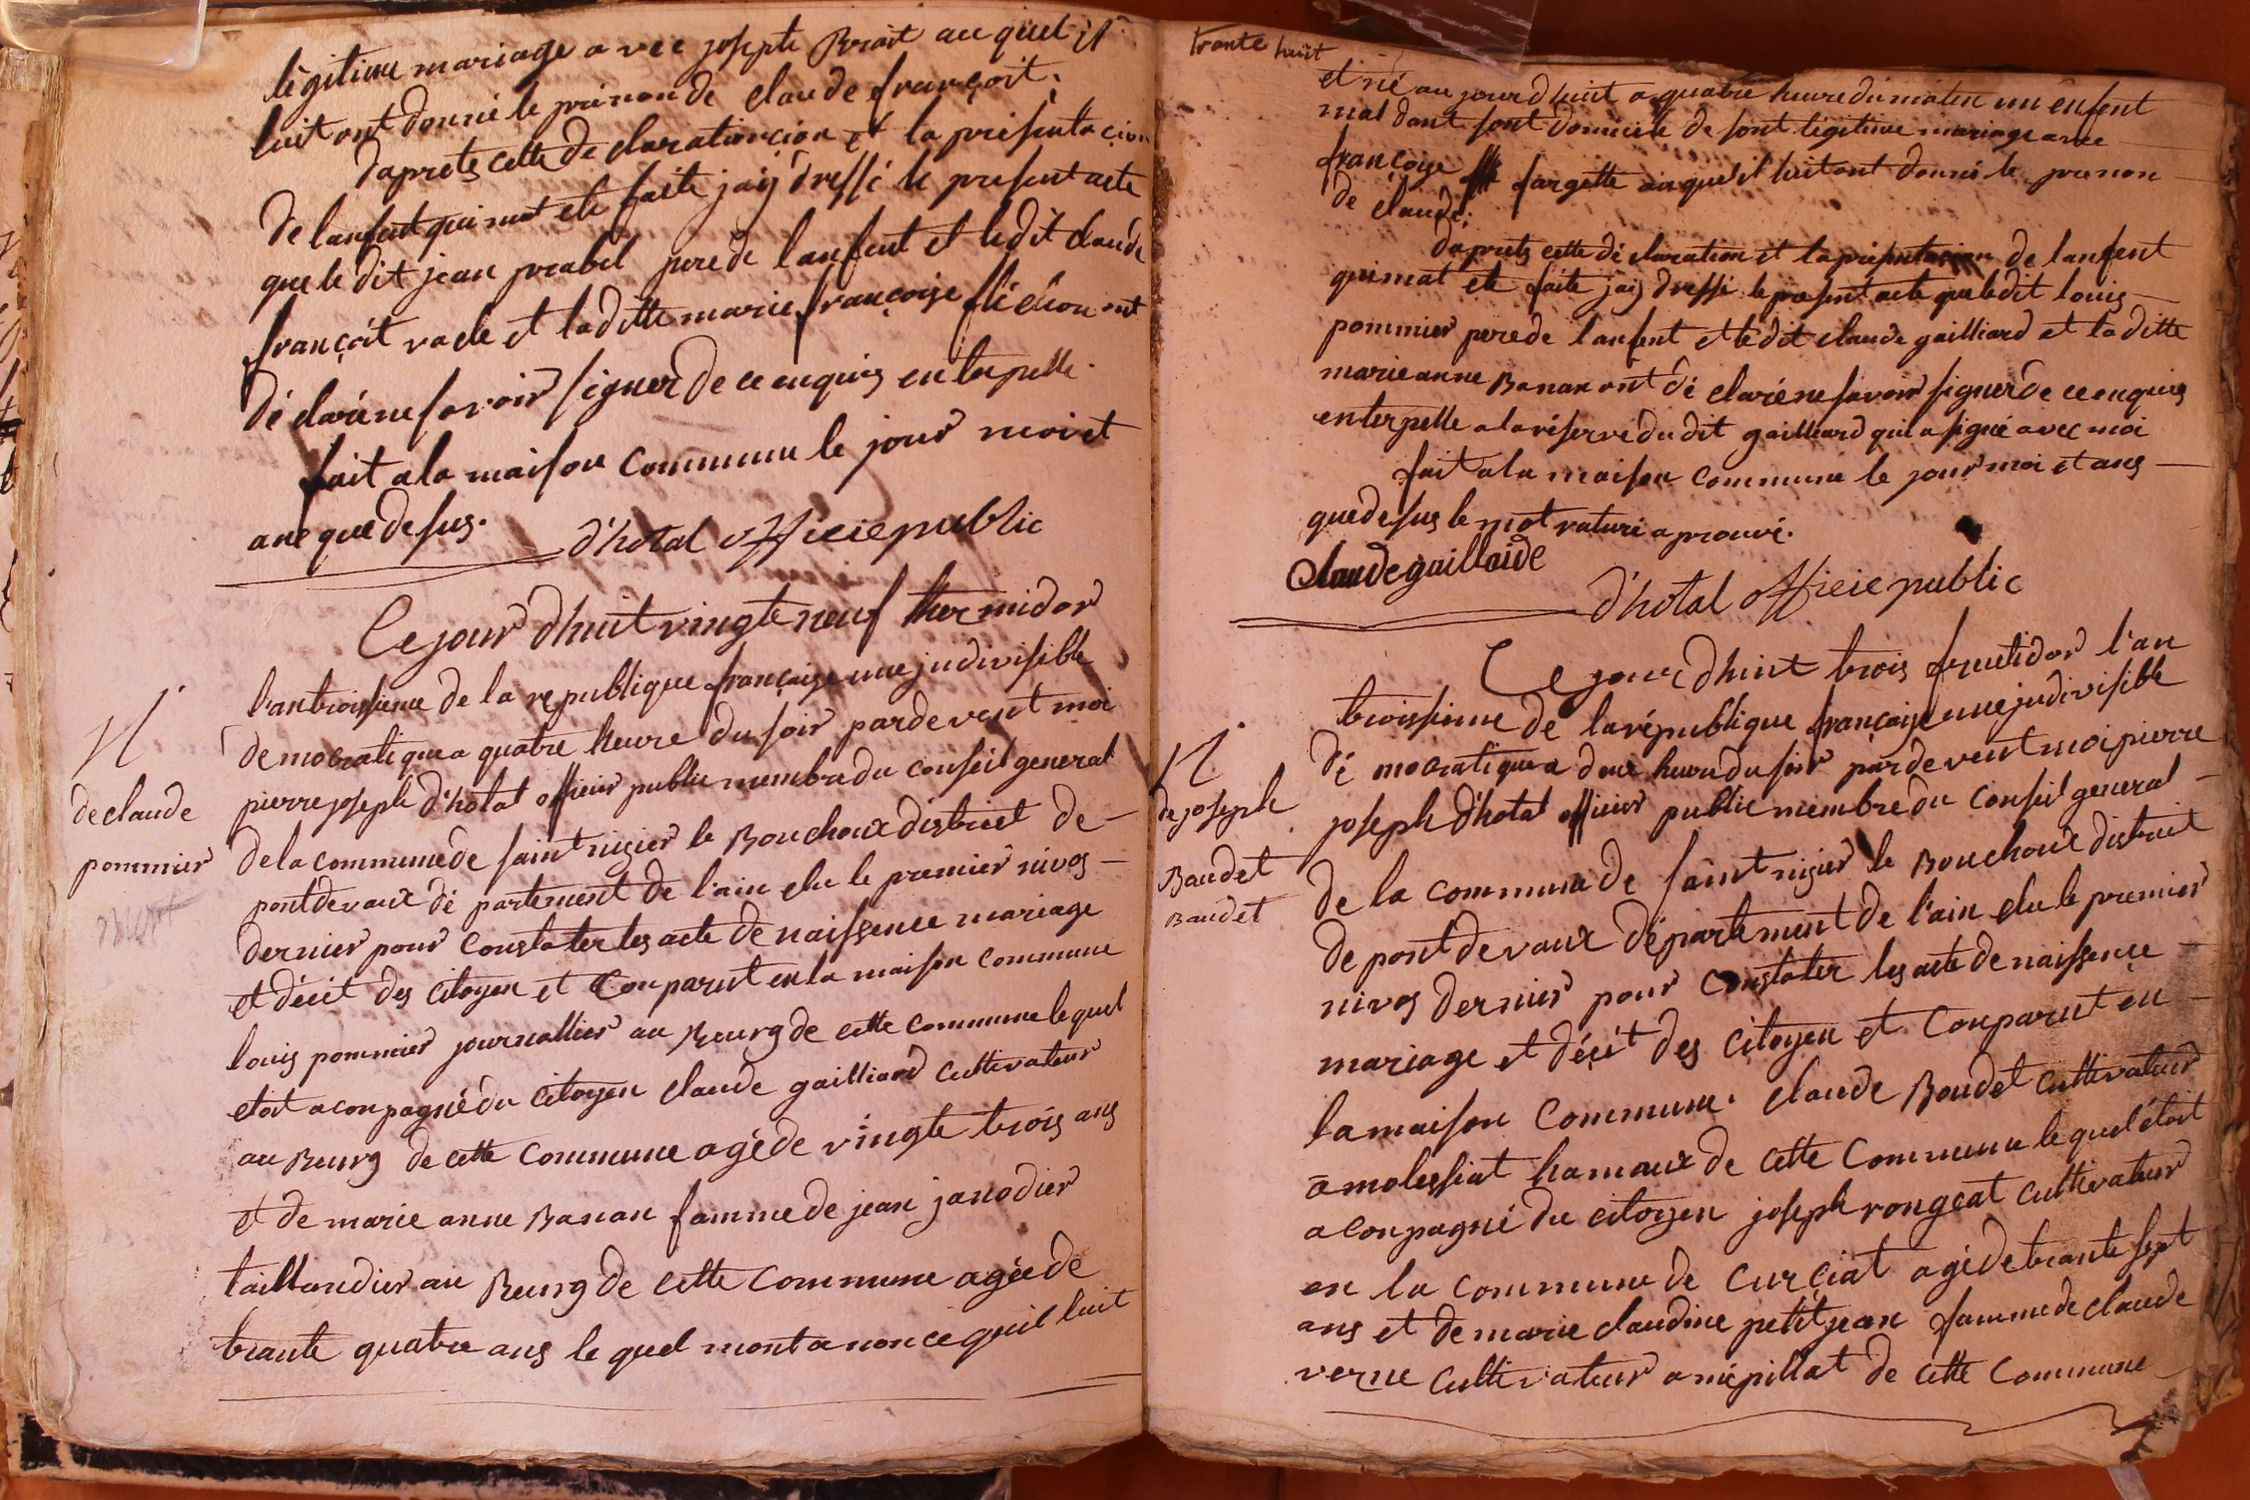 légitime mariage avec josepte Brait au quel il
luit ont donné le prénon de claude françoit.
daprets cette de claratiorcion et la présentacion
de lanfent qui mat ete faite jaij dressé le present acte
que le dit jean prabel pere de lanfent et ledit claude
françoit vacle et laditte marie françoise fléchon ont
dé claré ne savoir signer de ce enquis enterpelle.
fait a la maison commune le jour moi et
ans que desus.
d'hotal officie public
Ce jour d'huit vingte neuf thermidor
l'an troissieme de la republique française une jndivisible
democratique a quatre heure du soir pardevent moi
pierre joseph d'hotal officier public membre du conseil general
de la commune de saint nizier le Bouchoux district de
pontdevaux dé partement de l'ain elu le premier nivos
dernier pour constater les acte de naissence mariage
et décit des citoyen et Conparut en la maison commune
louis pommier journallier au Bourg de cette commune lequel
etoit aconpagné du citoyen claude gailliard cultivateur
au Bourg de cette commune agé de vingte trois ans
et de marie anne Banan famme de jean janodier
taillandier au Bourg de cette commune agée de
trante quatre ans le quel mont a nonce quil luit
N
de claude
pommier
mort
trante huit
et né au jourd huit a quatre heure du matin un enfent
mal dant sont domicile de sont légitime mariage avec
françoise fargette auquel il luit ont donné le prenon
de claude.
daprets cette dé claration et la présentacion de lanfent
qui mat ete faite jaij dressé le present acte que ledit louis
pommier pere de lanfent et ledit claude gailliard et la ditte
marie anne Banan ont dé claré ne savoir signer de ce enquis
enterpelle a la réserve du dit gailliard qui a signé avec moi
fait a la maison commune le jour moi et ans
que desus le mot raturé aprouvé.
Claude gaillaide
d'hotal officie public
Ce jour d'huit trois fructidor l'an
troissieme de la république française une jndivisible
dé mocratique a deux heure du soir pardevent moi pierre
joseph d'hotal officier public membre du conseil general
de la commune de saint nizier le Bouchoux district
de pontdevaux département de l'ain elu le premier
nivos dernier pour constater les acte de naissence
mariage et décit des citoyen et Conparut en
la maison commune. claude Baudet cultivateur
a molessiat hamaux de cette commune le quel étoit
aconpagné du citoyen joseph rongeat cultivateur
en la commune de curçiat agé de trante sept
ans et de marie claudine petitjean famme de claude
verne cultivateur a mépillat de cette commune
N
de joseph
Baudet
Baudet